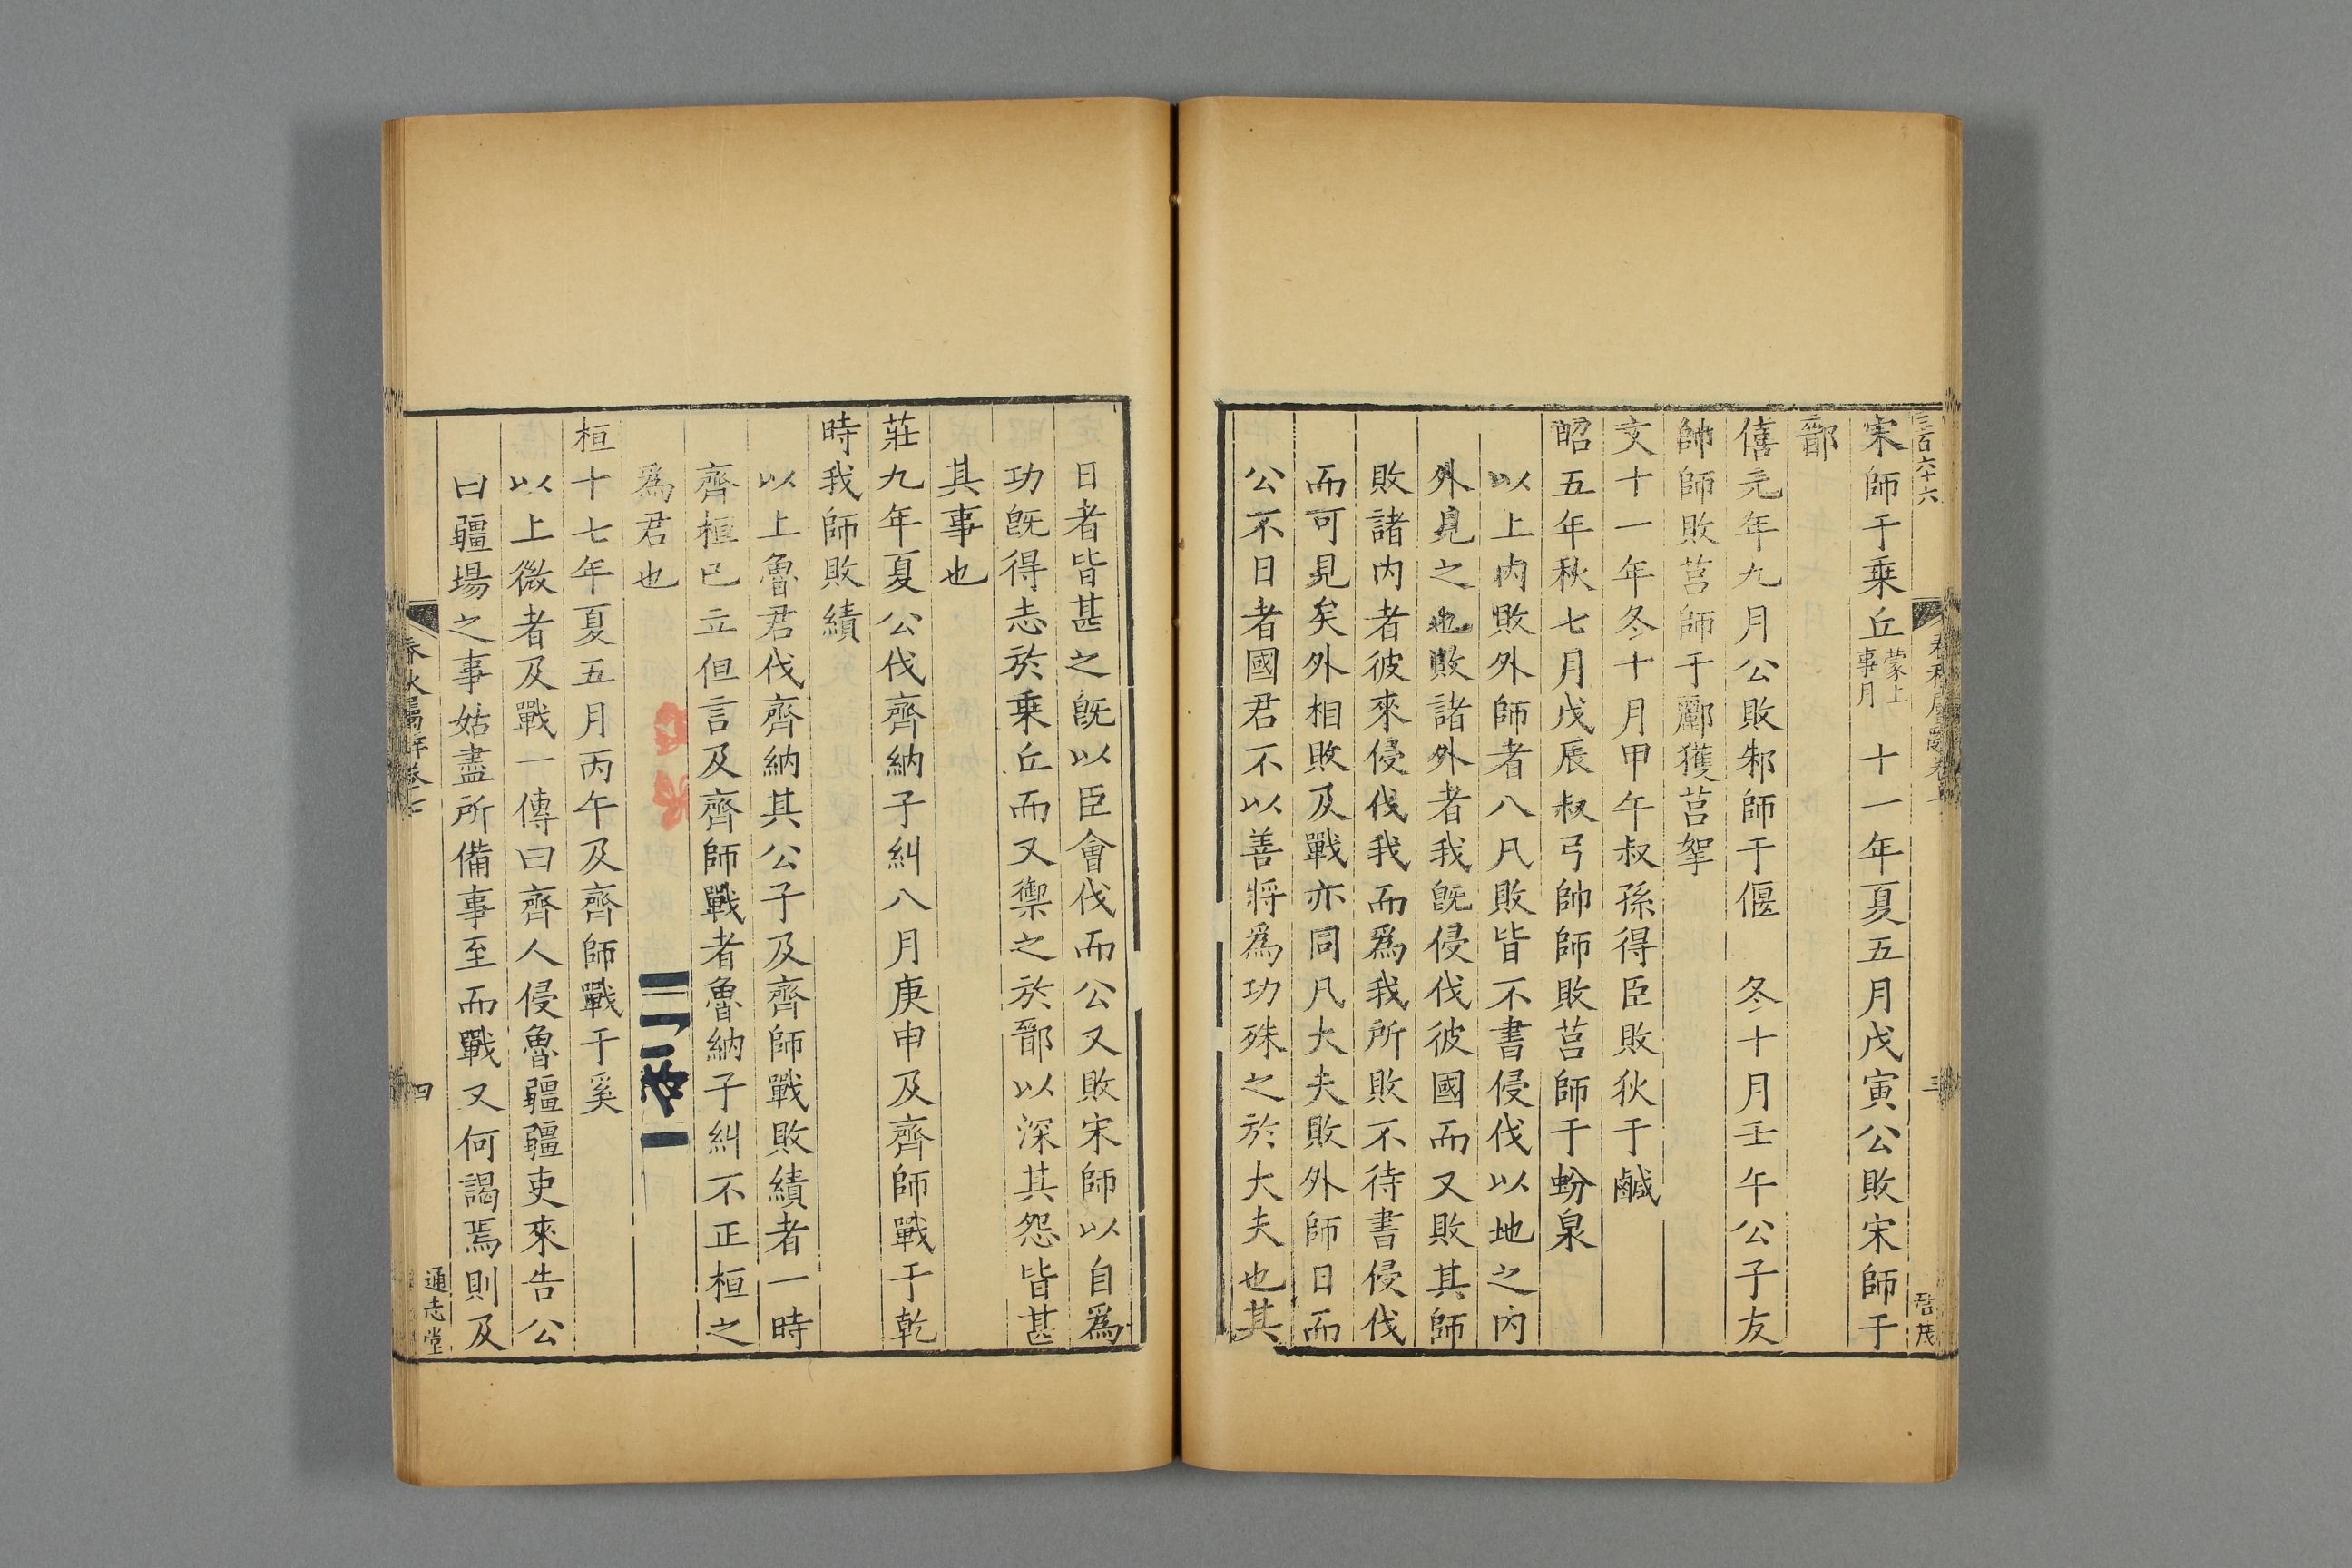 三百六十六
宋師于乗丘蒙上事月 十一年夏五月戊寅公敗宋師于
鄑
僖元年九月公敗邾師于偃 冬十月壬午公子友
帥師敗莒師于酈獲莒挐
文十一年冬十月甲午叔孫得臣敗狄于鹹
昭五年秋七月戊辰叔弓帥師敗莒師于蚡泉
以上内敗外師者八凡敗皆不書侵伐以地之内
外見之也敗諸外者我旣侵伐彼國而又敗其師
敗諸内者彼來侵伐我而爲我所敗不待書侵伐
而可見矣外相敗及戰亦同凡大夫敗外師日而
公不日者國君不以善將爲功殊之於大夫也其
日者皆甚之旣以臣會伐而公又敗宋師以自爲
功旣得志於乗丘而又禦之於鄑以深其怨皆甚
其事也
莊九年夏公伐齊納子糾八月庚申及齊師戰于乾
時我師敗績
以上魯君伐齊納其公子及齊師戰敗績者一時
齊桓已立但言及齊師戰者魯納子糾不正桓之
爲君也
桓十七年夏五月丙午及齊師戰于奚
以上微者及戰一傳曰齊人侵魯疆疆吏來告公
曰疆場之事姑盡所備事至而戰又何謁焉則及
春秋屬辭卷七
四
通志堂